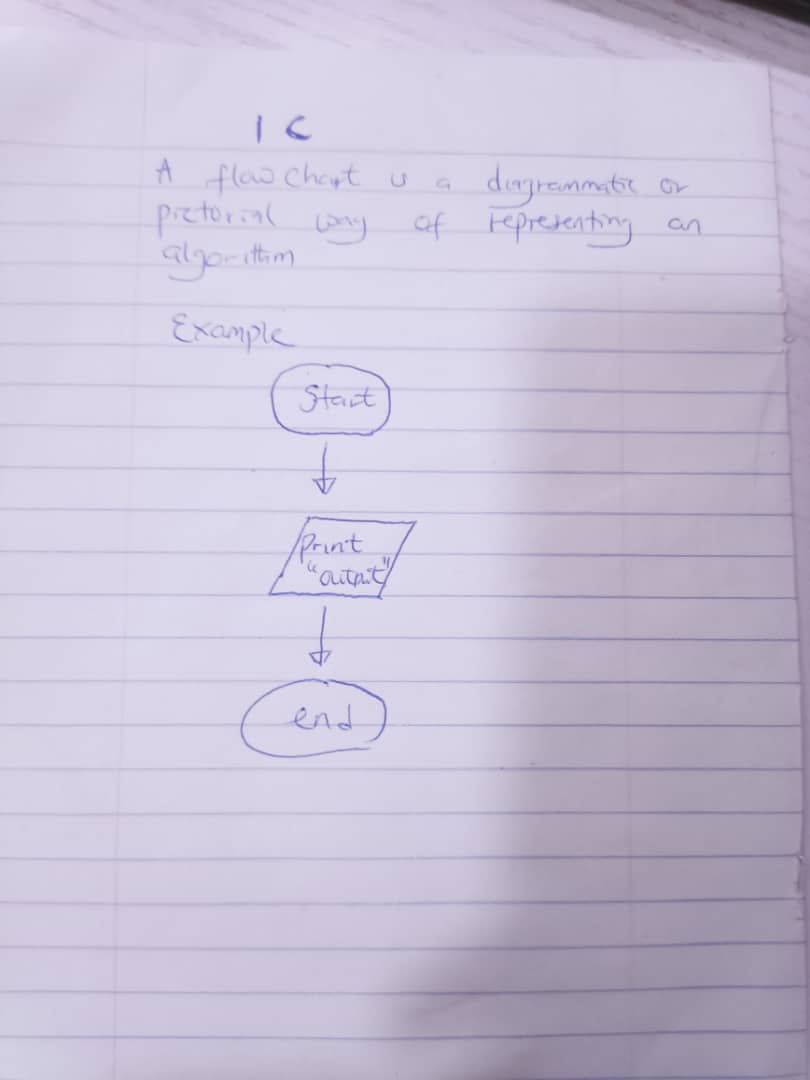 1 C
A flow chart is a diagrammatic or
pictorial way of representing an
algorithm
Example
Start
print
"output"
end